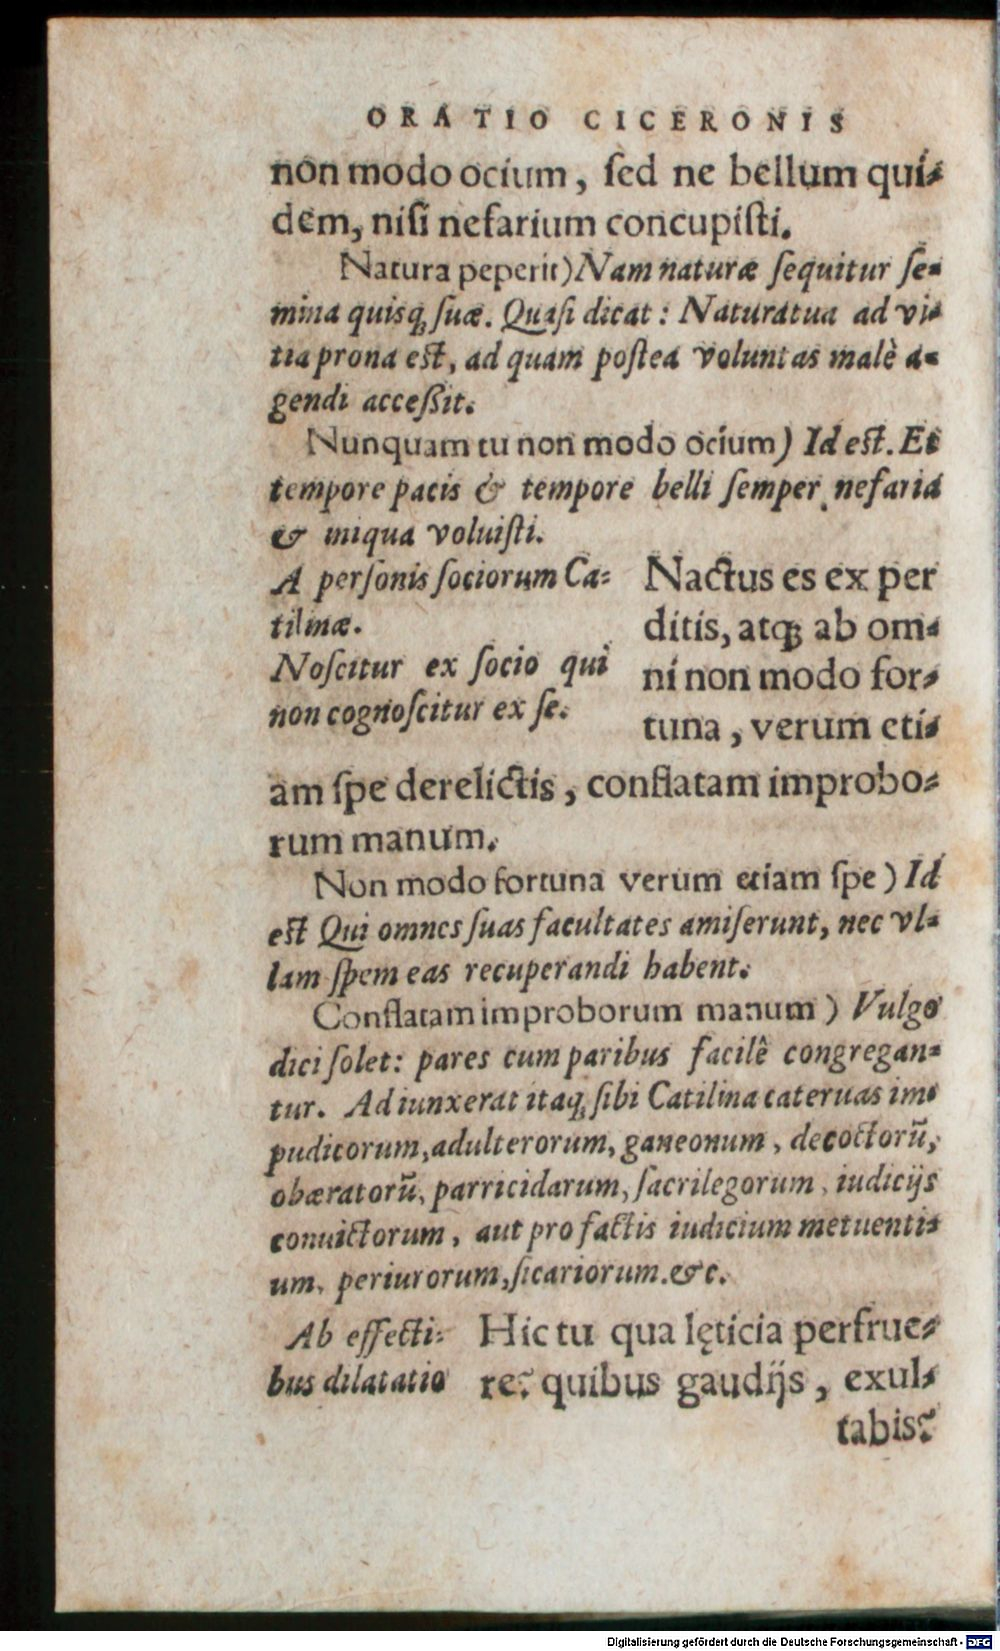 ORATIO CICERONIS
non modo ocium, ſed ne bellum qui⸗
dem, niſi nefarium concupiſti.
Natura peperit) Nam naturæ ſequitur ſe⸗
mina quisq; ſuæ. Quaſi dicat: Natura tua ad vi⸗
tia prona eſt, ad quam poſtea voluntas malè a⸗
gendi acceßit.
Nunquam tu non modo ocium) Id eſt. Et
tempore pacis & tempore belli ſemper nefaria
& iniqua voluiſti.
A perſonis ſociorum Ca⸗
tilinæ.
Noſcitur ex ſocio qui
non cognoſcitur ex ſe.
Nactus es ex per
ditis, atq; ab om⸗
ni non modo for⸗
tuna, verum eti⸗
am ſpe derelictis, conflatam improbo⸗
rum manum.
Non modo fortuna verum etiam ſpe) Id
eſt Qui omnes ſuas facultates amiſerunt, nec vl⸗
lam ſpem eas recuperandi habent.
Conflatam improborum manum) Vulgo
dici ſolet: pares cum paribus facilê congregan⸗
tur. Adiunxerat itaq; ſibi Catilina cateruas im⸗
pudicorum, adulterorum, ganeonum, decoctorũ,
obæratorũ, parricidarum, ſacrilegorum, iudicijs
conuictorum, aut pro factis iudicium metuenti⸗
um, periurorum, ſicariorum. &c.
Ab effecti⸗
bus dilatatio
Hic tu qua lęticia perfrue⸗
re? quibus gaudijs, exul⸗
tabis?
Digitalisierung gefördert durch die Deutsche Forschungsgemeinschaft - DFG